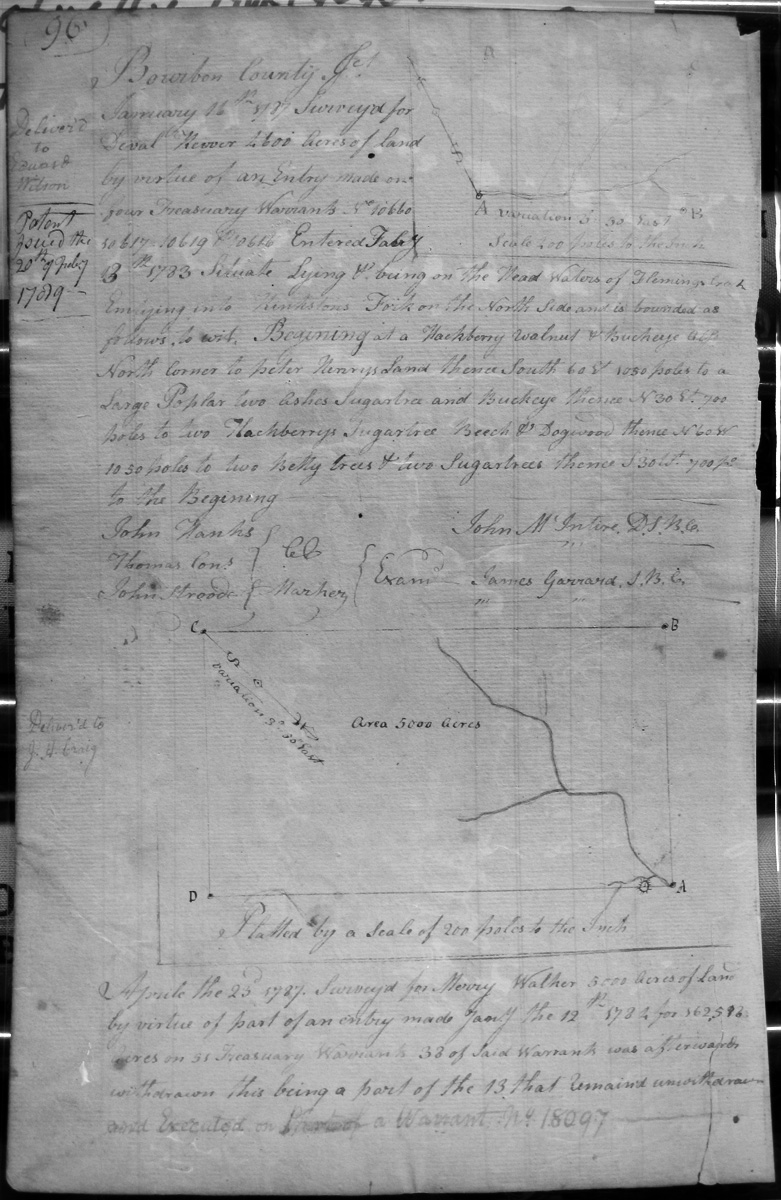 96
Bourbon County Sct
Deliver'd
to
Edward
Wilson
Patent
Issued the
20th of Feby
1789
January 16th 1787 Survey'd for
Deval 4600 Acres of land
by virtue of an Entry made on
four Treasuary Warrants No 10660
10617 10619 & 10616 Entered Jabey
13th 1783 Situate Lying & being on the Head Waters of Flemings Creek
Emptying into Hinkstons Fork on the North Side and is bounded as
follows, to wit. Begining at a Hackberry Walnut & Buckeye
North Corner to peter Henrys Land thence South 60 Et 1050 poles to a
Large Poplar two ashes Sugartree and Buckeye thence N 30 Et 700
poles to two Hackberrys Sugartree Beech & Dogwood thence N 60 W
1050 poles to two Betty trees & two Sugartrees thence S 30 Wt 700 po
to the Begining
S
A
B
variation 3° 30 East
Scale 200 poles to the Inch
John Hanks
Thomas Cons
John Stroode
CC
Marker
Examd
John McIntire, D.S.B.C.
James Garrard, S.B.C.
C
B
S
N
variation 3° 30 East
Area 5000 Acres
Deliver'd to
J. H. Craig
D
A
Platted by a Scale of 200 poles to the Inch
Aprile the 23d 1787. Survey'd for Merry Walker 5000 Acres of Land
by virtue of part of an entry made Jany the 12th 1784 for 162593
acres on 51 Treasuary Warrants 38 of Said Warrants was afterwards
withdrawn this being a part of the 13 that Remaind unwithdrawn
and Executed on a Warrant No 18097